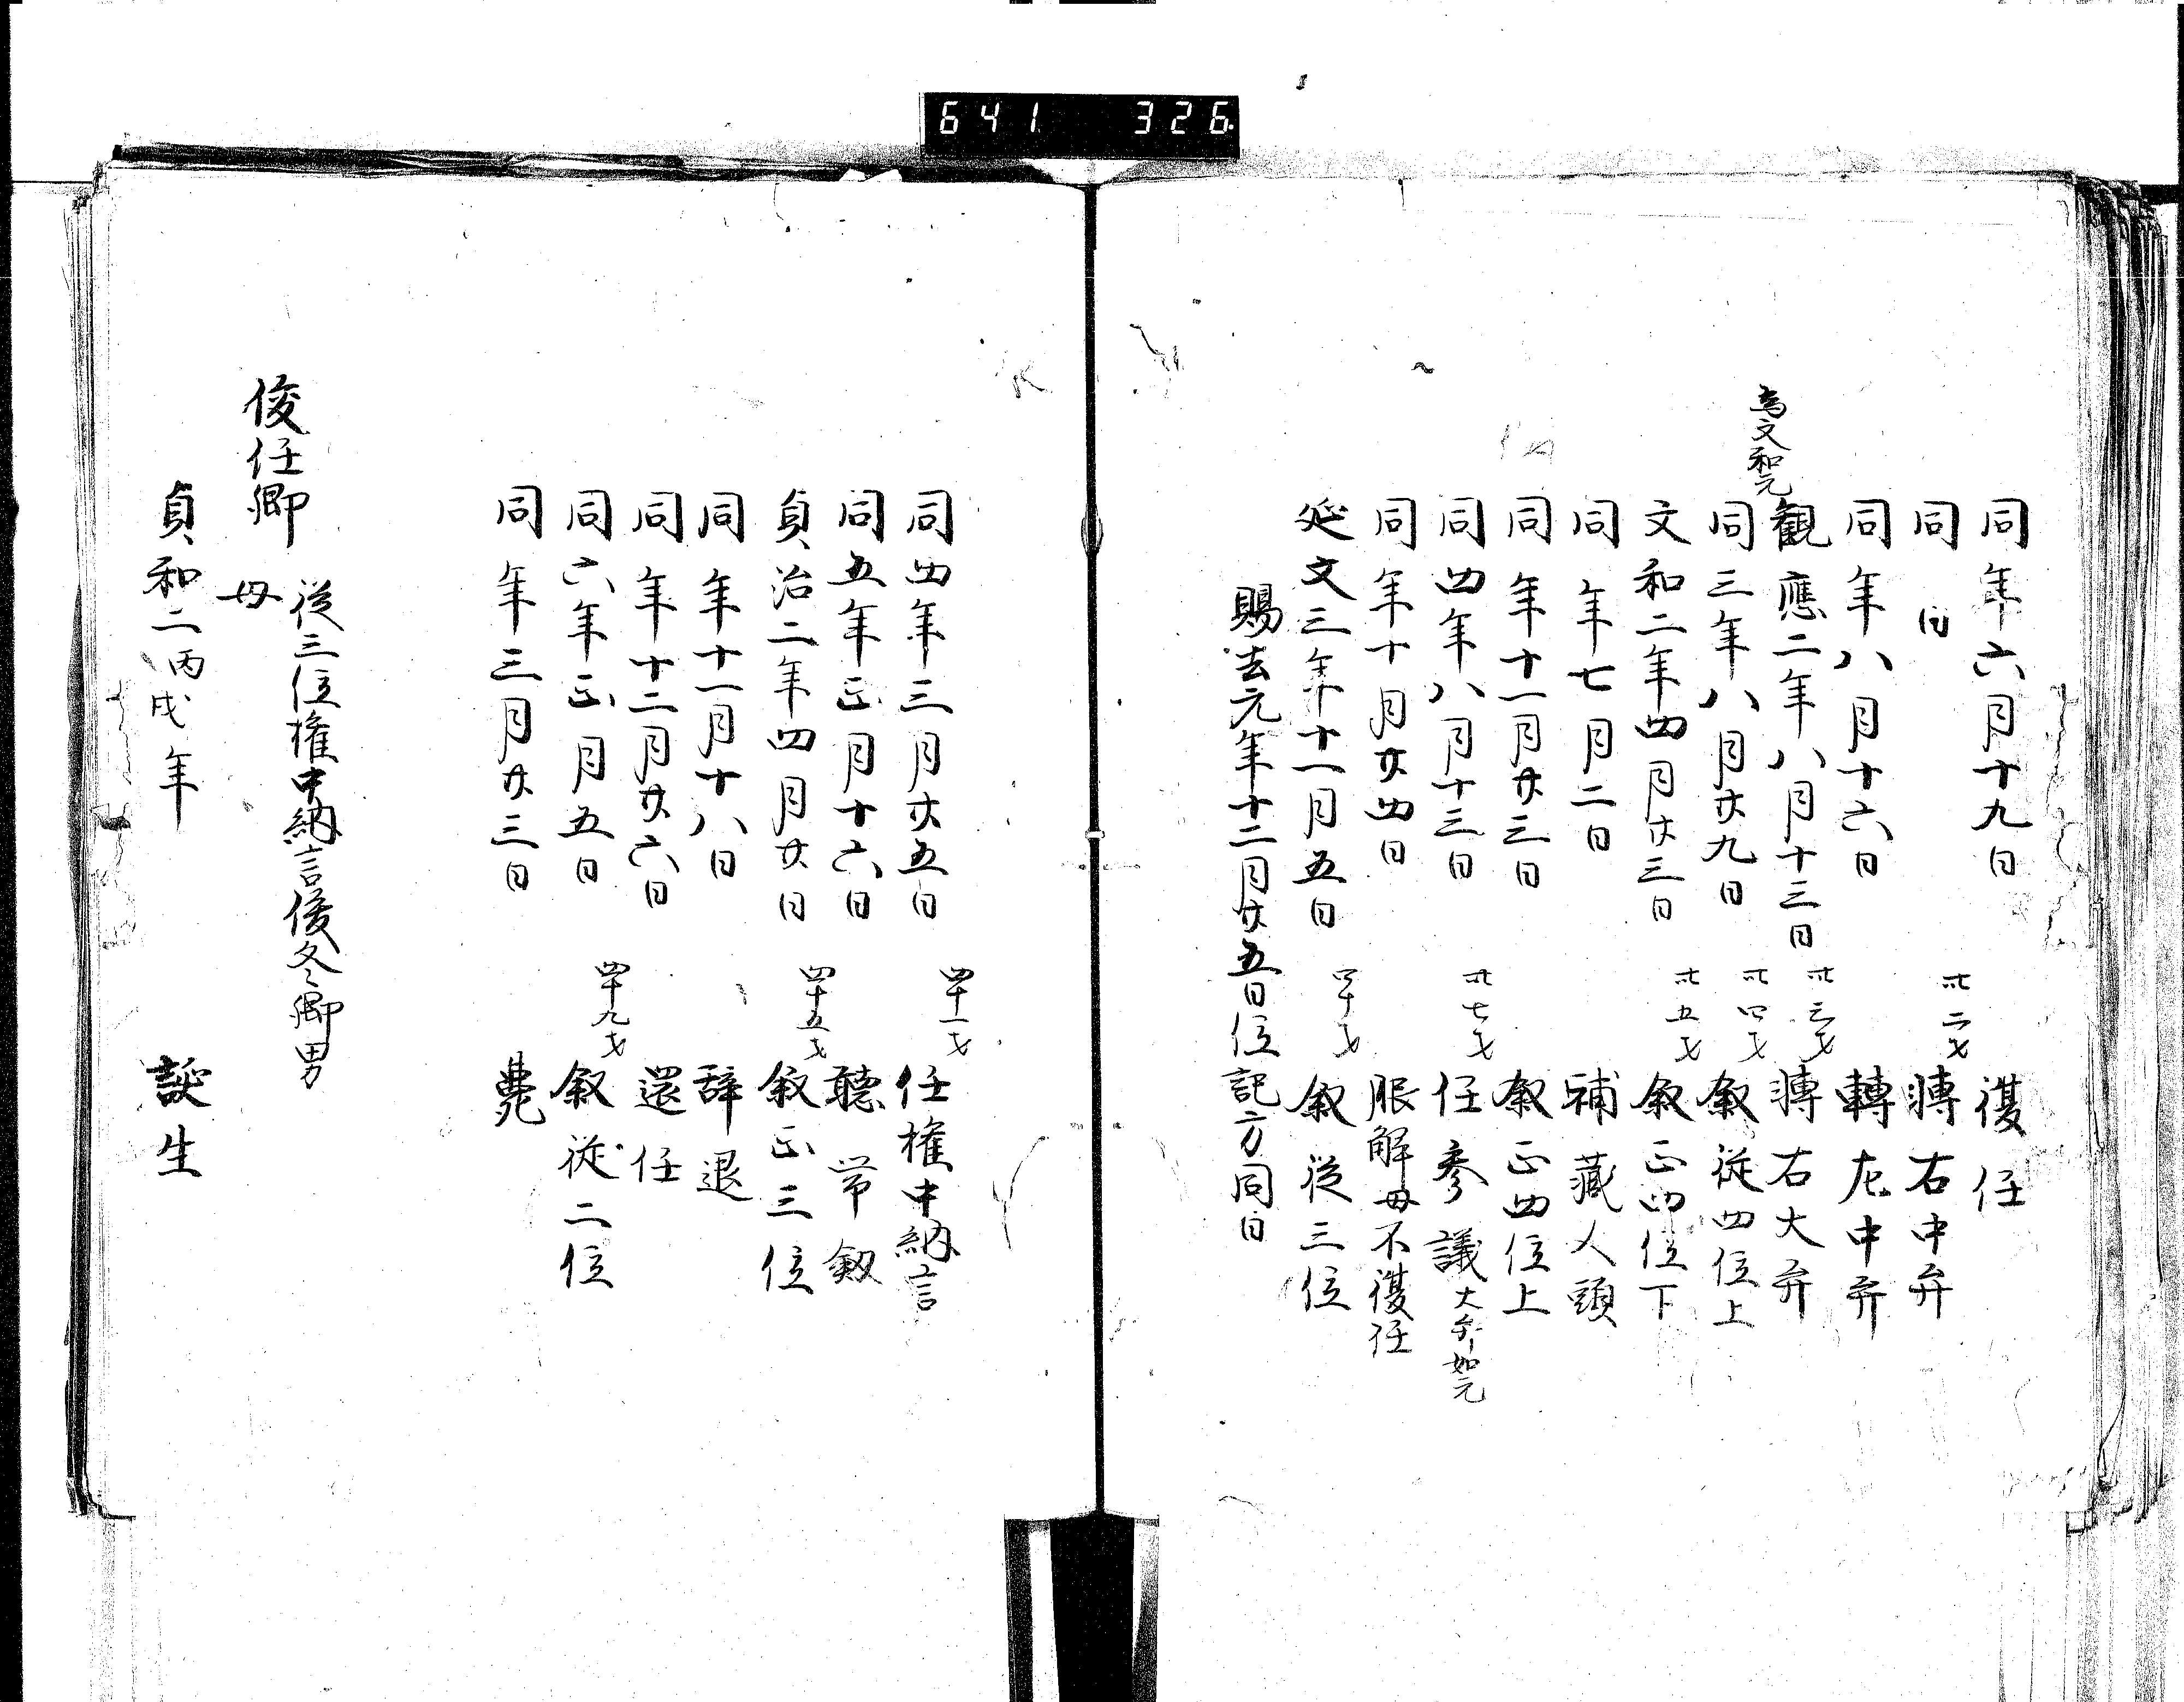 641 326
同年六月十九日 復任
同日 卅二才 轉右中弁
同年八月十六日 轉左中弁
観應二年八月十三日 卅三才 轉右大弁
為文和元
同三年八月廿九日 卅四才 叙従四位上
文和二年四月廿三日 卅五才 叙正四位下
同年七月二日 補藏人頭
同年十一月廿三日 叙正四位上
同四年八月十三日 卅七才 任参議大弁如元
同年十月廿四日 服解母不復任
延文三年十一月五日 四十才 叙従三位
賜去元年十二月廿五日位記方同日
同四年三月廿五日 四十一才 任権中納言
同五年正月十六日 聴帯剱
貞治二年四月廿日 四十五才 叙正三位
同年十一月十八日 辞退
同年十二月廿六日 還任
同六年正月五日 四十九才 叙従二位
同年三月廿三日 薨
従三位権中納言俊冬卿男
俊任卿 母
貞和二丙戌年 誕生